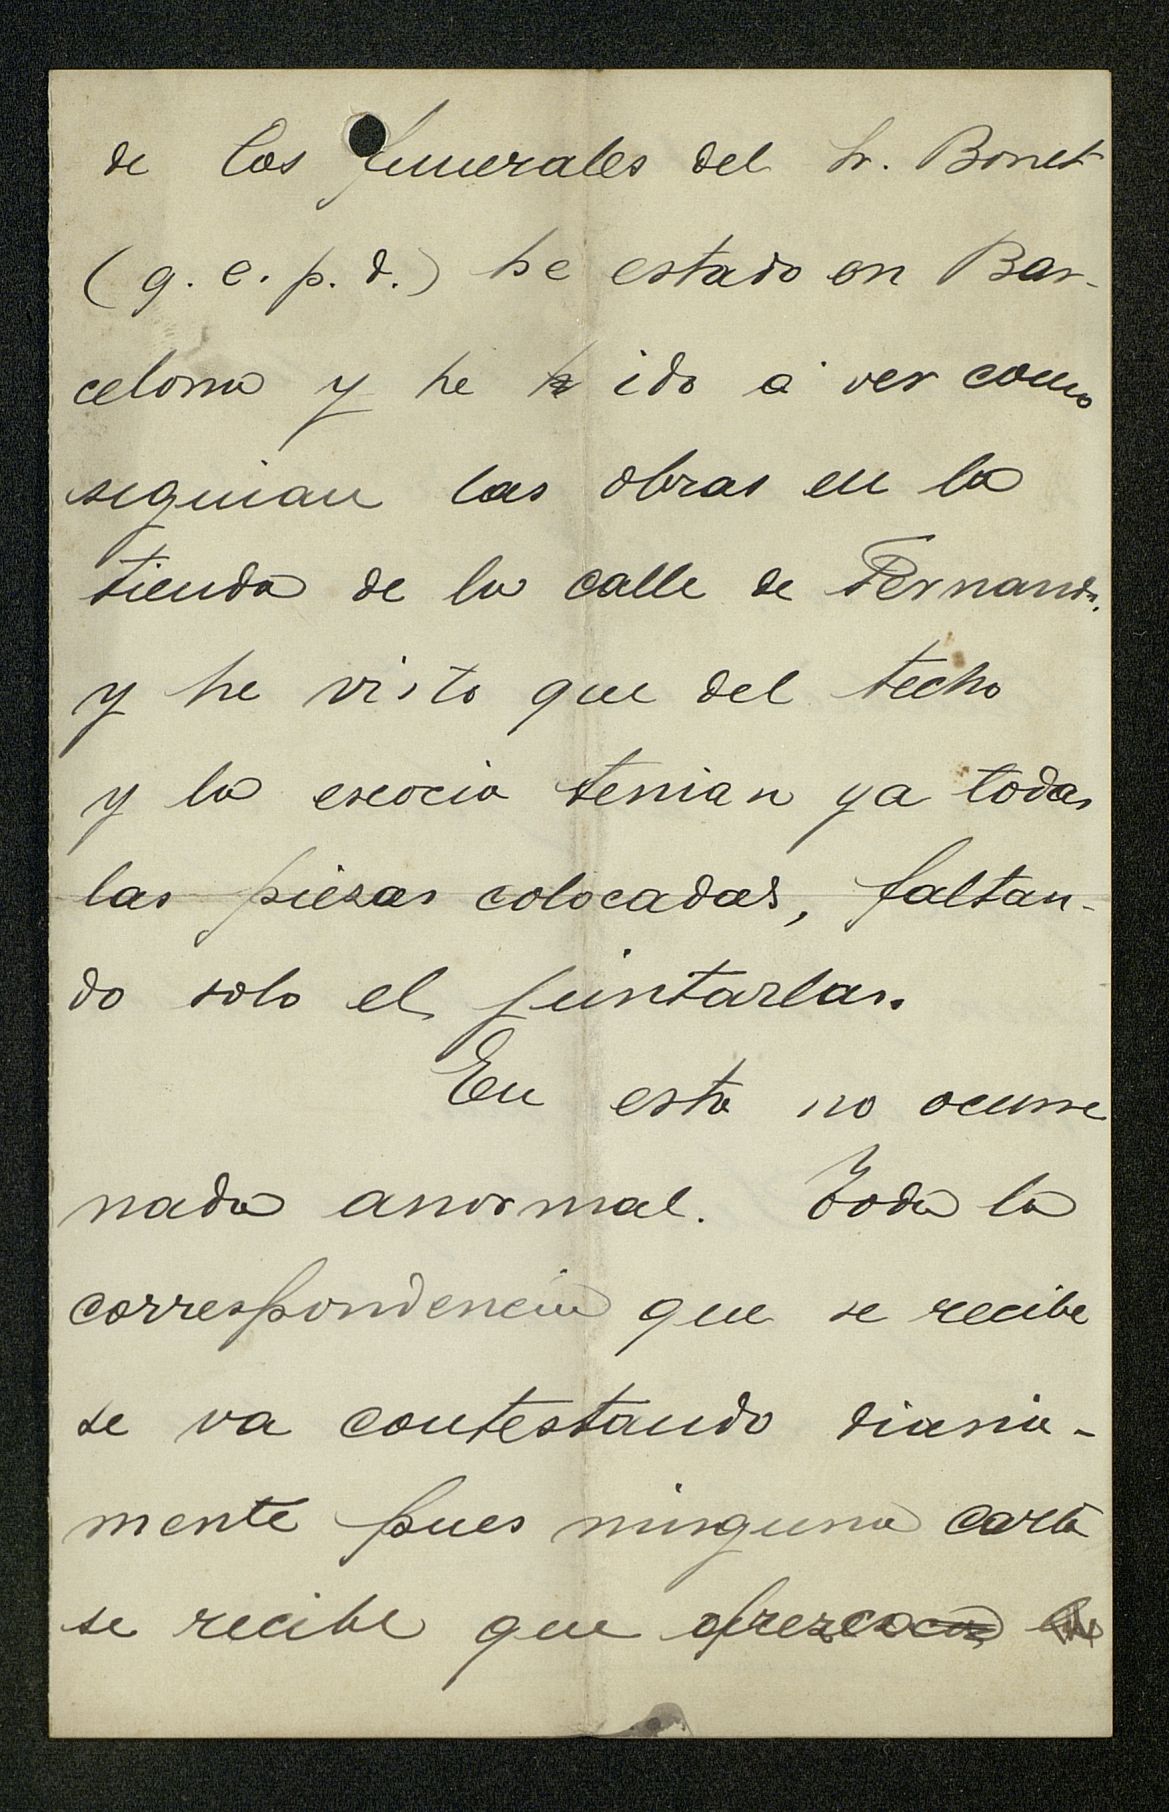 de los funerales del Sr. Bonet
(q. e. p. d.) he estado en Bar-
celona y he ido á ver como
seguian las obras en la
tienda de la calle de Fernando.
y he visto que del techo
y la escocia tenian ya todas
las piezas colocadas, faltan-
do solo el pintarlas.
En esta no ocurre
nada anormal. Toda la
correspondencia que se recibe
se va contestando diaria-
mente pues ninguna carta
se recibe que ofrezca